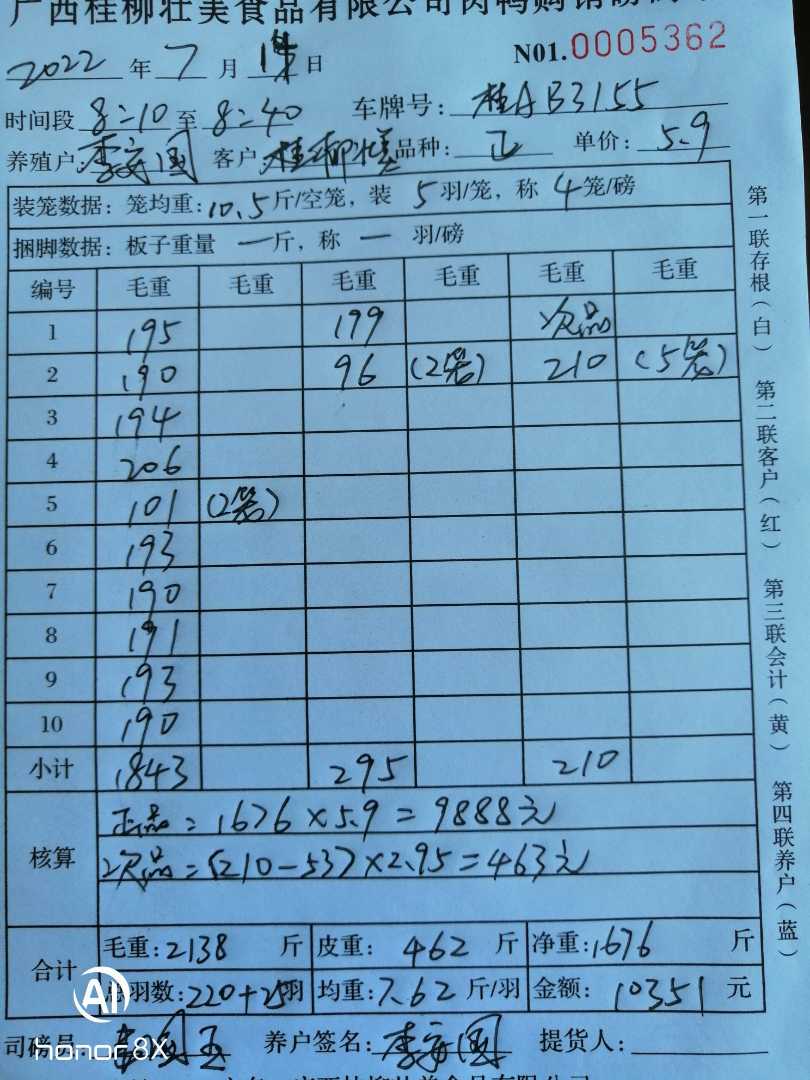 广西桂柳壮美食品有限公司肉鸭购销磅码单
2022 年 7 月 14 日 N01.0005362
时间段 8:10 至 8:40 车牌号: 桂AB3155
养殖户: 李 国 客户: 桂柳壮美 品种: 正 单价: 5.9
装笼数据: 笼均重: 10.5 斤/空笼, 装 5 羽/笼, 称 4 笼/磅
捆脚数据: 板子重量 一 斤, 称 一 羽/磅
编号 毛重 毛重 毛重 毛重 毛重 毛重
1 195 199 次品
2 190 96 (2笼) 210 (5笼)
3 194
4 206
5 101 (2笼)
6 193
7 190
8 191
9 193
10 190
小计 1843 295 210
核算
正品=1676×5.9=9888元
次品=(210-53)×2.95=463元
合计
毛重: 2138 斤 皮重: 462 斤 净重: 1676 斤
总羽数: 220+25羽 均重: 7.62 斤/羽 金额: 10351 元
司磅员: 国玉 养户签名: 李 国 提货人:
第一联存根(白) 第二联客户(红) 第三联会计(黄) 第四联养户(蓝)
AI
honor 8X